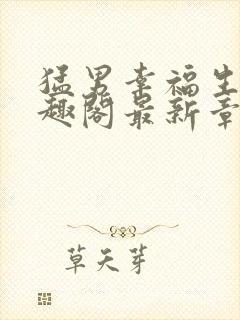 猛男幸福生
趣阁最新章
草天芽